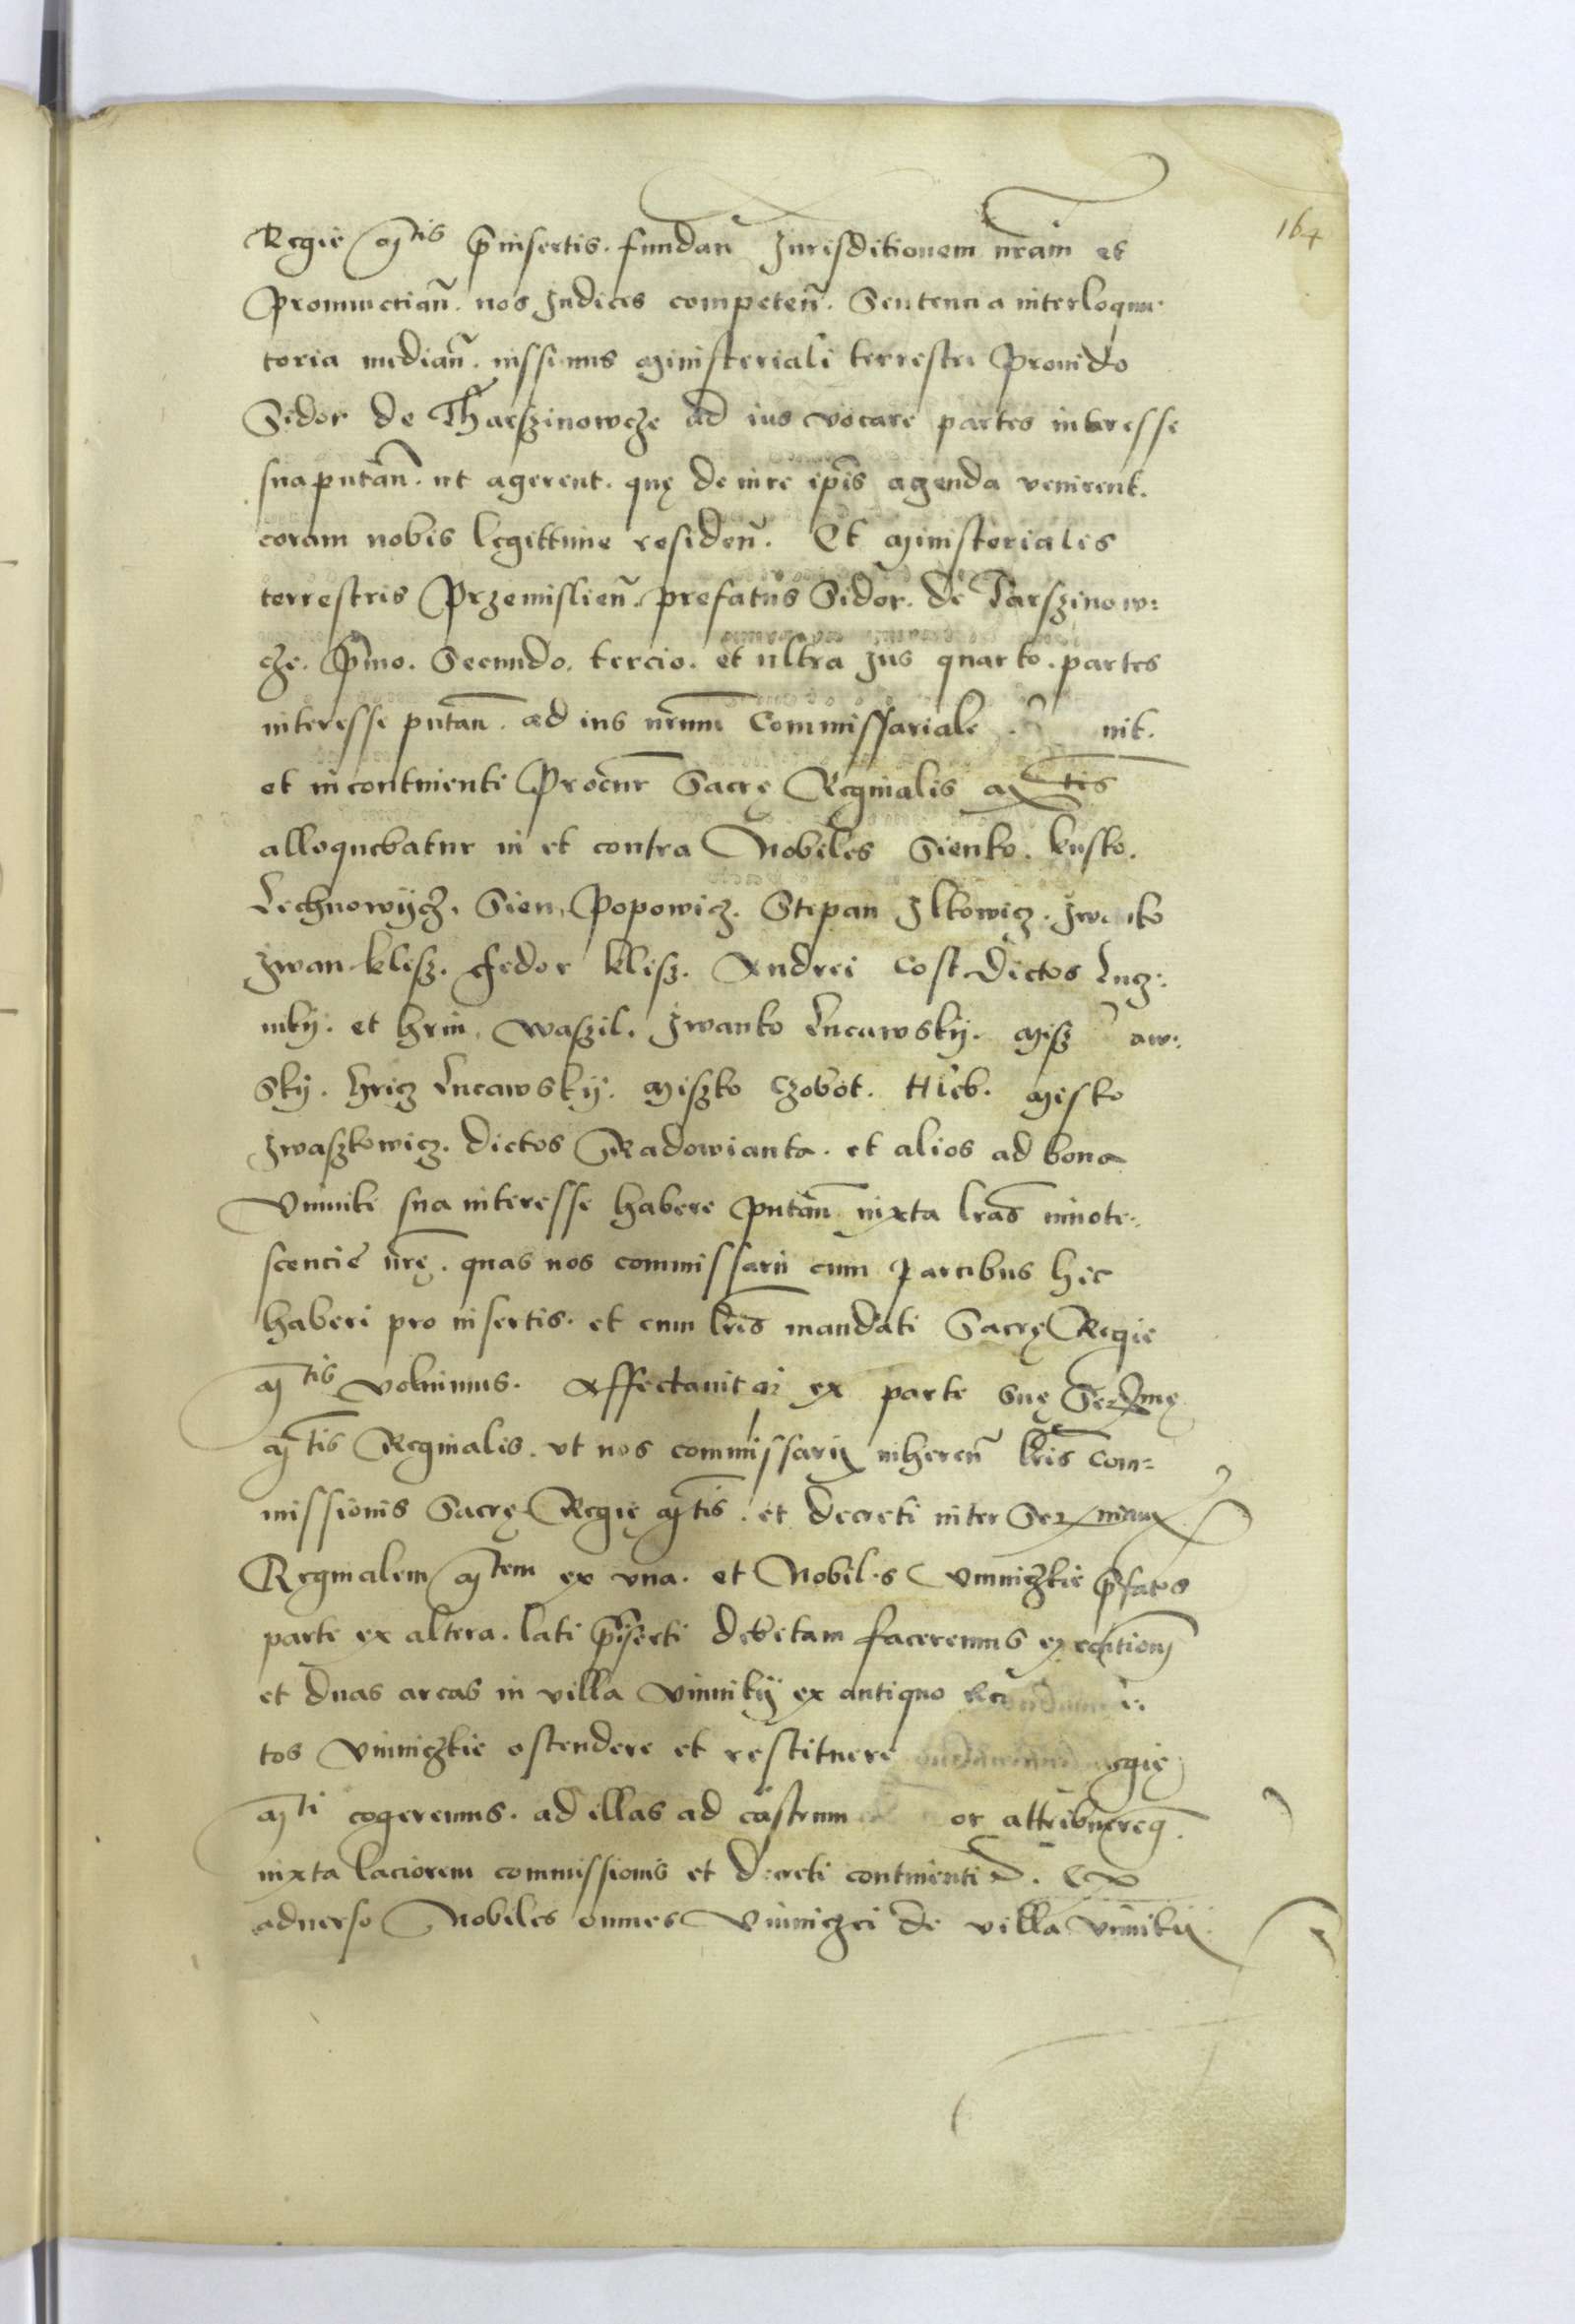 164
Regie Mtis p̃insertis. fundañ Jurisditionem nr̃am et
Pronunctiañ. nos Judices competeñ. Sentencia interloqu-
toria mediañ. iussimus Ministeriali terrestri Prouido
Sidor de Tharszinowcze ad ius vocare partes interesse
sua putañ. ut agerent. quę de iure ip̃is agenda venirent.
coram nobis legittime resideñ. Et Ministerialis
terrestris Przemislieñ. prefatus Sidor. de Tarszinow:
cze. P̃mo. Secundo. tercio. et ultra Jus quarto. partes
interesse putañ. ad ius nr̃um Commissariale nit.
et incontinenti Procur̃ Sacrę Reginalis Mtis
alloquebatur in et contra Nobiles Sienko. kusko.
Lechnowÿcz. Sien Popowicz. Stepan Ilkowicz. Jwanko
Jwan klisz. fedor klisz. Andrei Cost dictos Lucz:
nkÿ. et hrin, waszil. Jwanko Lucawskÿ. Misz aw:
skÿ. hricz Lucawskÿ. Miszko Czobot. Hleb. Misko
Jwaszkowicz. dictos Radowianta. et alios ad bona
Vinniki sua interesse habere putañ iuxta lr̃as innote-
scencie nr̃ę. quas nos commissarii cum partibus hic
haberi pro insertis. et cum lr̃is mandati Sacrę Regie
Mtis voluimus. Affectauit ex parte suę Serx̃mę
Mtis Reginalis. vt nos commissarii inhereñ lr̃is Com=
missionis Sacrę Regię Mtis. et decreti inter Serx̃mam
Reginalem Mtem ex vna. et Nobiles Vinniczkie p̃fatos
parte ex altera. lati p̃iserti debitam faceremus executionem
et duas areas in villa Vinnikÿ ex antiquo
tos Vinniczkie ostendere et restituere gię
Mti cogeremus. ad illas ad castrum or attribueremq̃.
iuxta laciorem commissionis et decreti continentiã. Ex
aduerso Nobiles omnes Vinniczci de villa Vinnikii